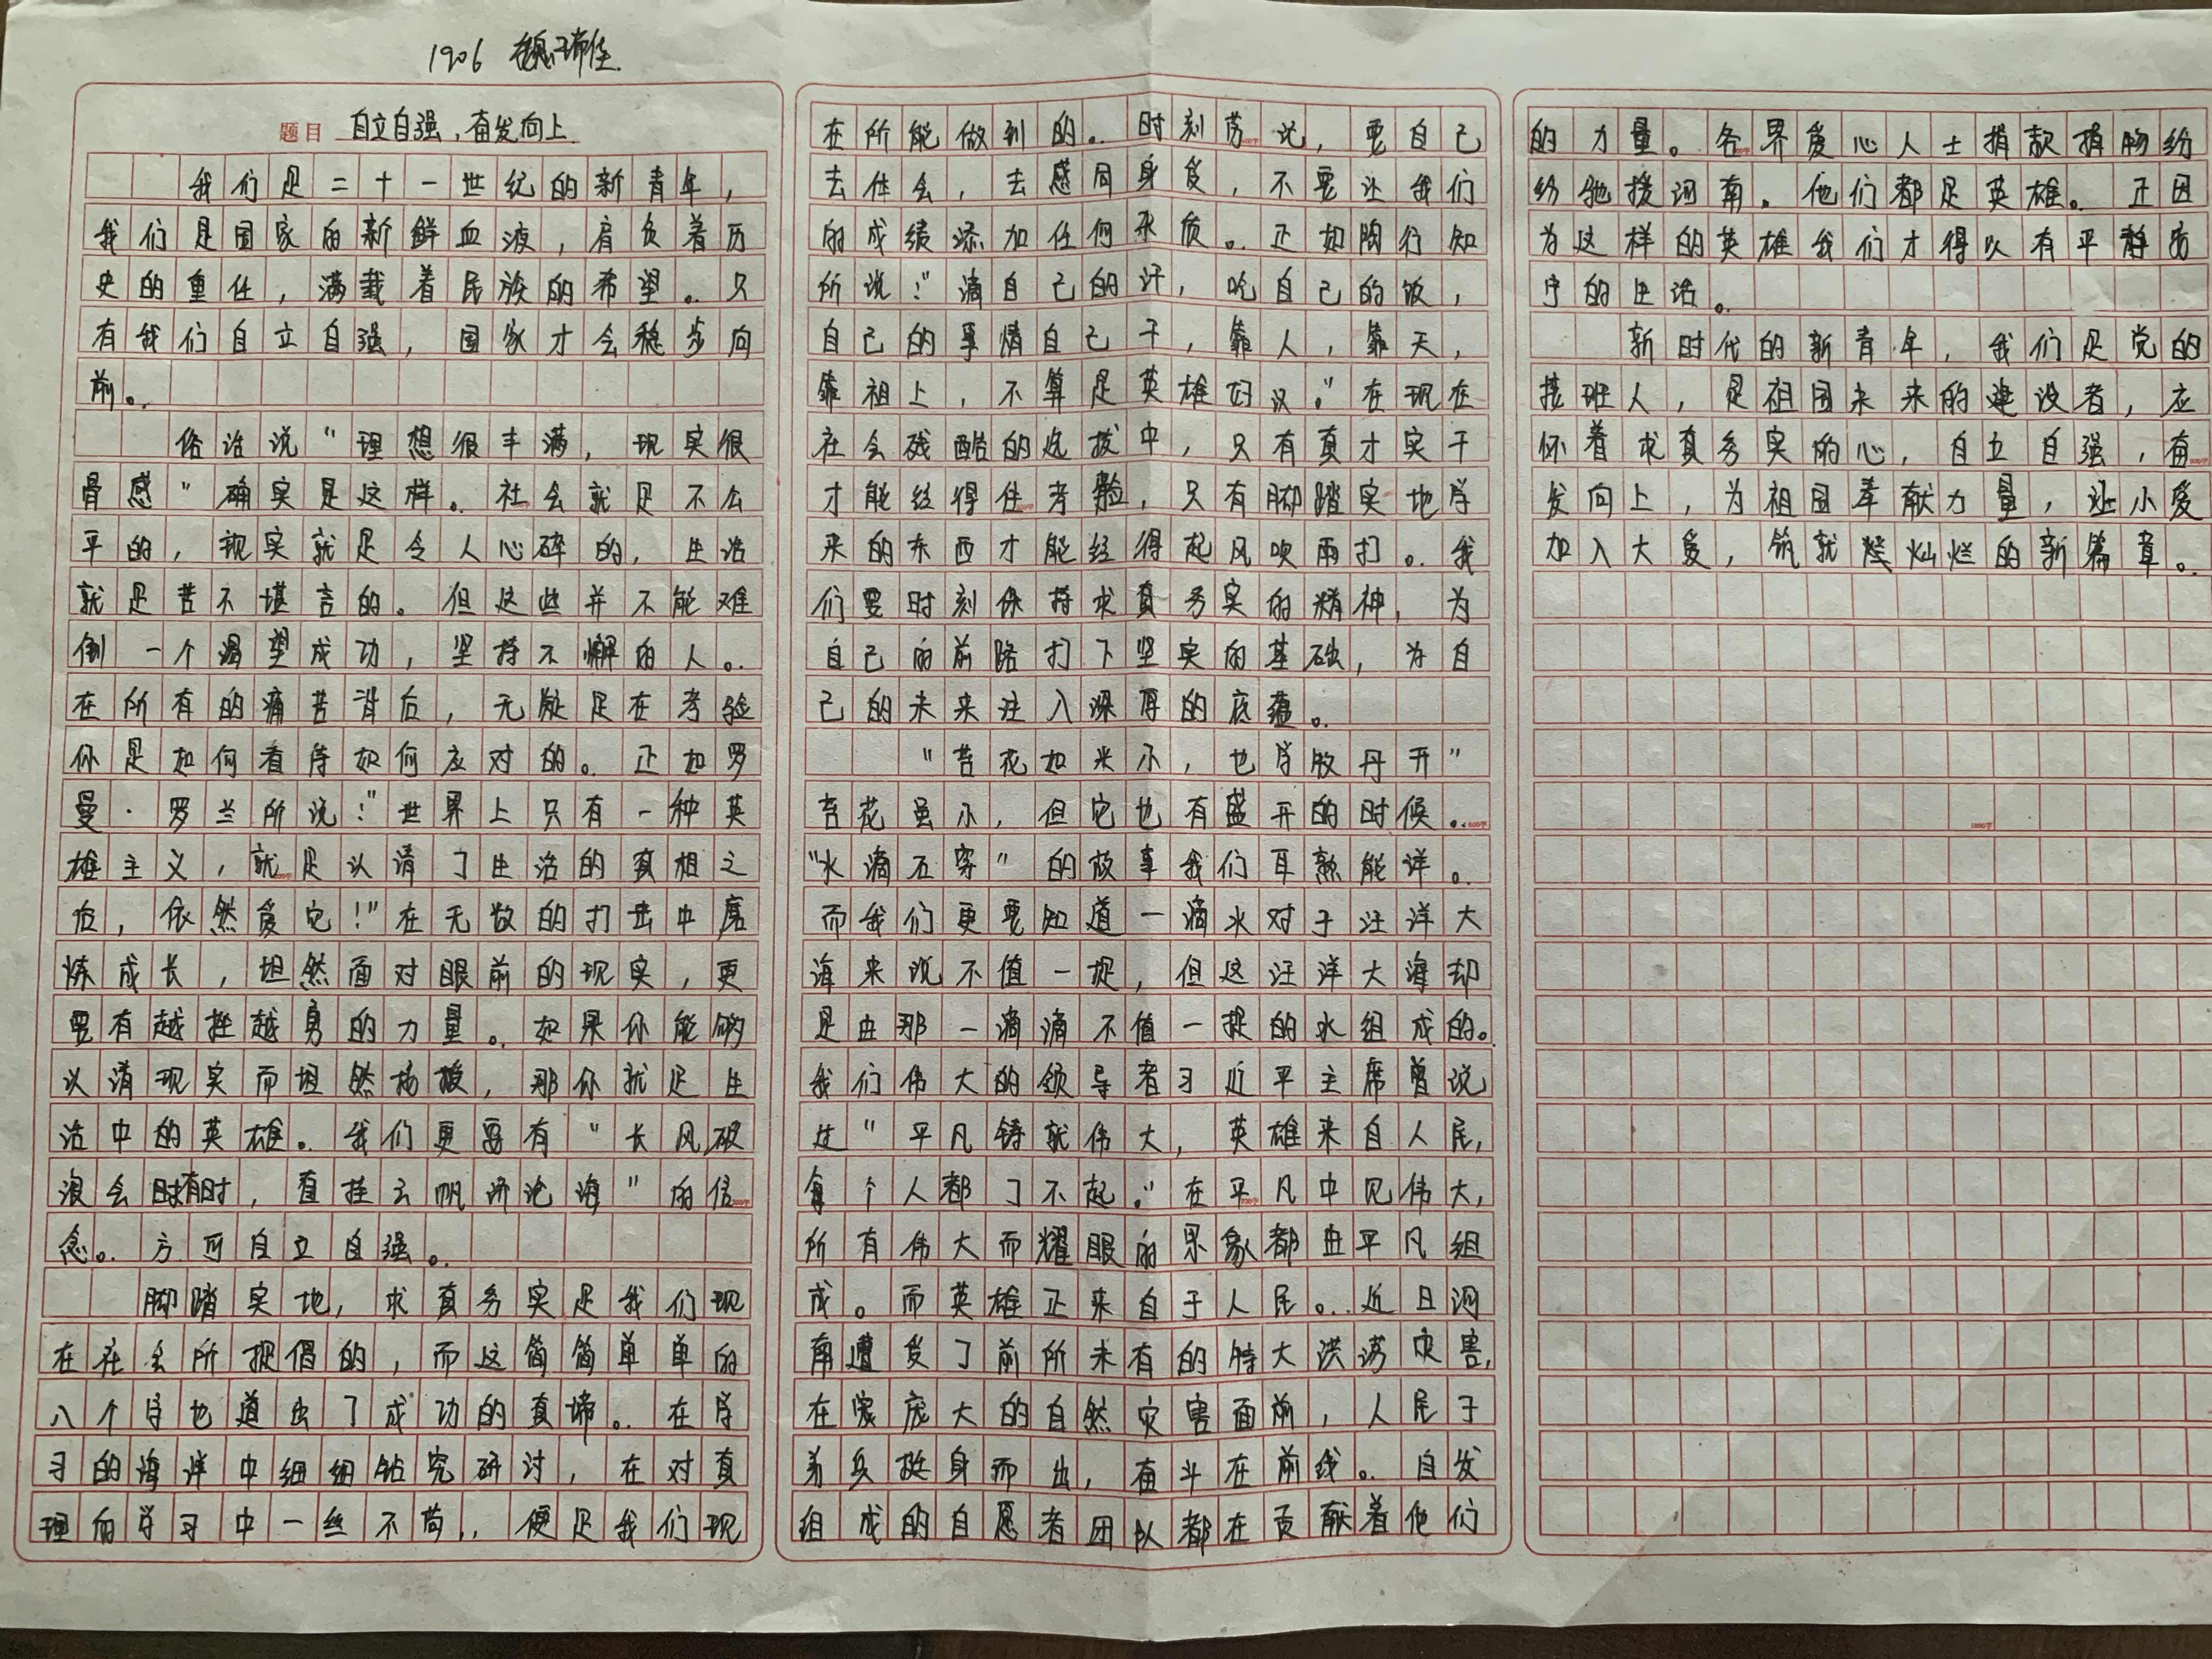 1906 魏瑞佳
题目 自立自强，奋发向上
我们是二十一世纪的新青年，
我们是国家的新鲜血液，肩负着历
史的重任，满载着民族的希望。只
有我们自立自强，国家才会稳步向
前。
俗话说“理想很丰满，现实很
骨感”确实是这样。社会就是不公
平的，现实就是令人心碎的，生活
就是苦不堪言的。但这些并不能难
倒一个渴望成功，坚持不懈的人。
在所有的痛苦背后，无疑是在考验
你是如何看待如何应对的。正如罗
曼·罗兰所说：“世界上只有一种英
雄主义，就是认清了生活的真相之
后，依然爱它！”在无数的打击中磨
炼成长，坦然面对眼前的现实，更
要有越挫越勇的力量。如果你能够
认清现实而坦然拥抱，那你就是生
活中的英雄。我们更要有“长风破
浪会有时，直挂云帆济沧海”的信
念。方可自立自强。
脚踏实地，求真务实是我们现
在社会所提倡的，而这简简单单的
八个字也道出了成功的真谛。在学
习的海洋中细细钻究研讨，在对真
理的学习中一丝不苟，便是我们现
在所能做到的。时刻劳记，要自己
去体会，去感同身受，不要让我们
的成绩添加任何杂质。正如陶行知
所说：“滴自己的汗，吃自己的饭，
自己的事情自己干，靠人，靠天，
靠祖上，不算是英雄好汉。”在现在
社会残酷的选拔中，只有真才实干
才能经得住考验，只有脚踏实地学
来的东西才能经得起风吹雨打。我
们要时刻保持求真务实的精神，为
自己的前路打下坚实的基础，为自
己的未来注入深厚的底蕴。
“苔花如米小，也学牡丹开”
苔花虽小，但它也有盛开的时候。
“水滴石穿”的故事我们耳熟能详。
而我们更要知道一滴水对于汪洋大
海来说不值一提，但这汪洋大海却
是由那一滴滴不值一提的水组成的。
我们伟大的领导者习近平主席曾说
过“平凡铸就伟大，英雄来自人民，
每个人都了不起。”在平凡中见伟大，
所有伟大而耀眼的景象都由平凡组
成。而英雄正来自于人民。近日河
南遭受了前所未有的特大洪涝灾害，
在庞大的自然灾害面前，人民子
弟兵挺身而出，奋斗在前线。自发
组成的自愿者团队都在贡献着他们
的力量。各界爱心人士捐款捐物纷
纷驰援河南。他们都是英雄。正因
为这样的英雄我们才得以有平静有
序的生活。
新时代的新青年，我们是党的
接班人，是祖国未来的建设者，应
怀着求真务实的心，自立自强，奋
发向上，为祖国奉献力量，让小爱
加入大爱，筑就灿烂的新篇章。